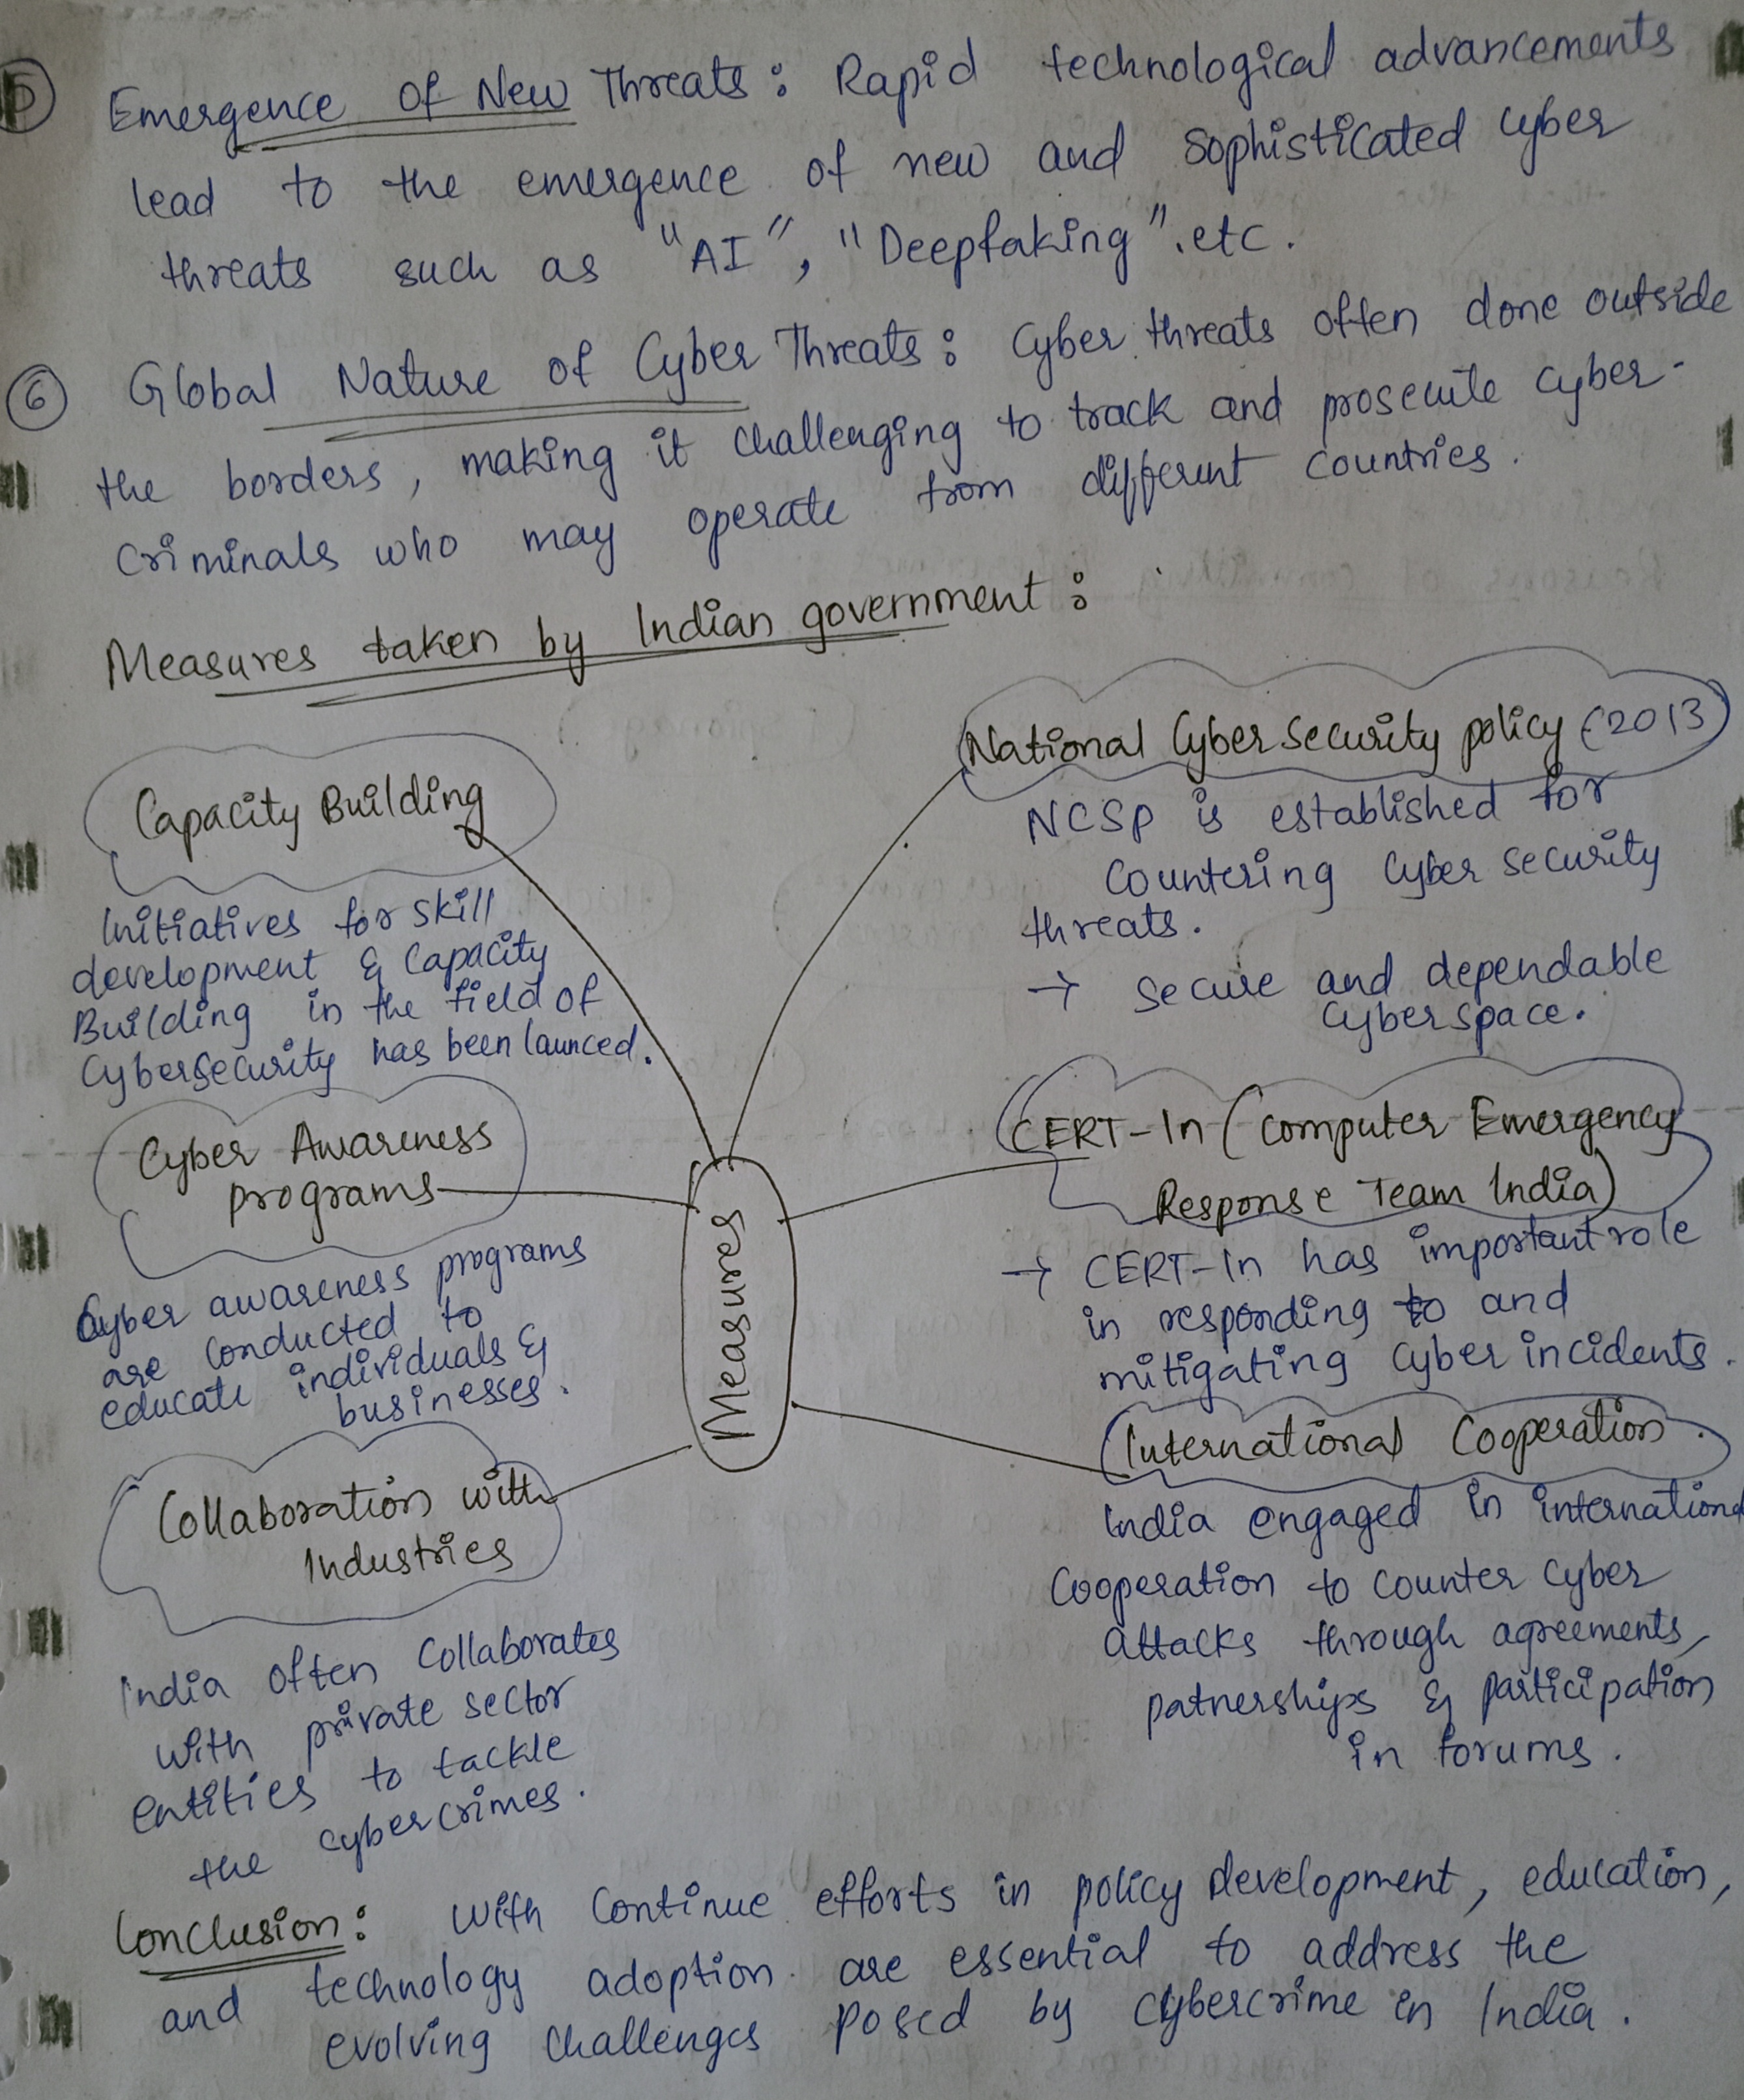 5 Emergence of New Threats : Rapid technological advancements
lead to the emergence of new and sophisticated cyber
threats such as "AI", "Deepfaking".etc.
6 Global Nature of Cyber Threats : Cyber threats often done outside
the borders, making it challenging to track and prosecute cyber-
criminals who may operate from different countries.
Measures taken by Indian government :
Capacity Building
Initiatives for skill
development & capacity
Building in the field of
Cybersecurity has been launced.
Cyber Awareness
programs
Cyber awareness programs
are conducted to
educate individuals &
businesses.
Collaboration with
Industries
India often collaborates
with private sector
entities to tackle
the cybercrimes.
Measures
National Cyber Security policy (2013)
NCSP is established for
Countering Cyber security
threats.
→ secure and dependable
cyberspace.
CERT-In (Computer Emergency
Response Team India)
→ CERT-In has important role
in responding to and
mitigating cyber incidents.
International Cooperation.
India engaged in international
Cooperation to counter cyber
attacks through agreements,
patnerships & participation
in forums.
Conclusion : With continue efforts in policy development, education,
and technology adoption are essential to address the
evolving challenges posed by cybercrime in India.